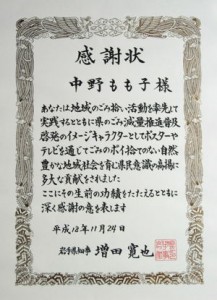 感謝状
中野もも子様
あなたは地域のごみ拾い活動を率先して
実践するとともに県のごみ減量推進普及
啓発のイメージキャラクターとしてポスターや
テレビを通じてごみのポイ捨てのない自然
豊かな地域社会を育む県民意識の高揚に
多大な貢献をされました
ここにその生前の功績をたたえるとともに
深く感謝の意を表します
平成18年11月29日
岩手県知事 増田寛也